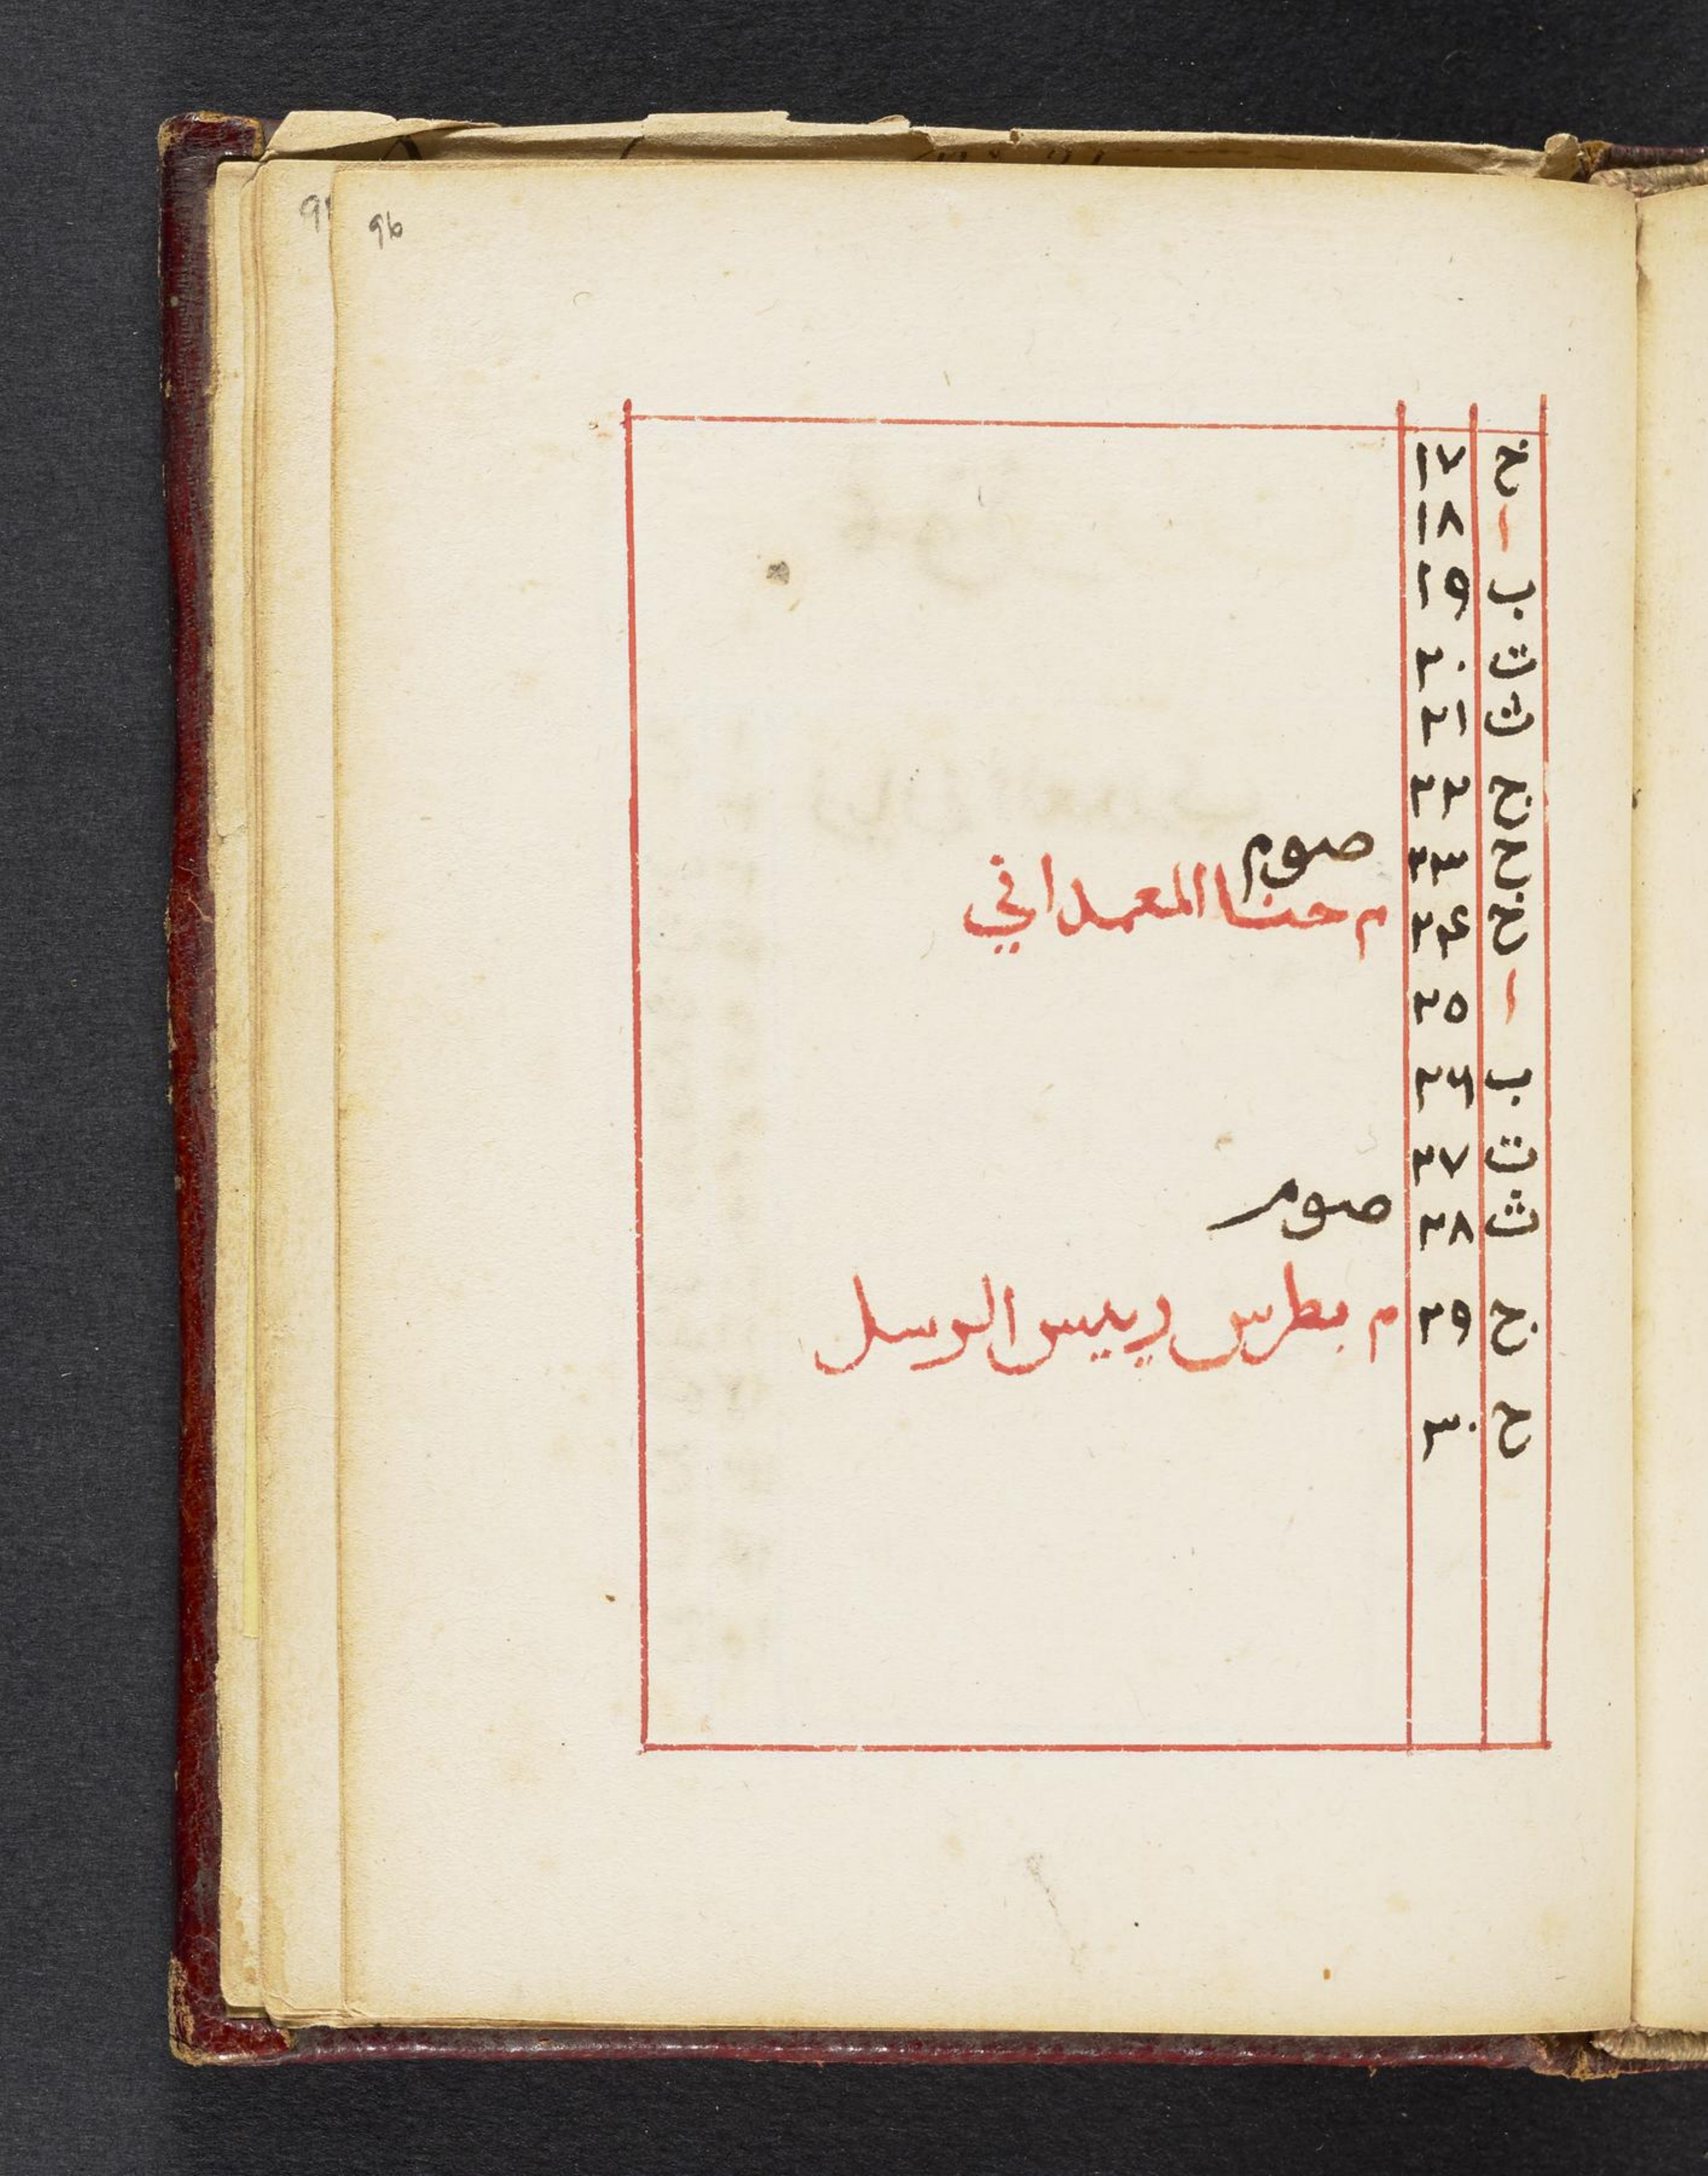 96
خ ١٧
ا ١٨
ب ١٩
ت ٢٠
ث ٢١
ج ٢٢
ح ٢٣ صوم
خ ٢٤ م حنا المعمداني
ا ٢٥
ب ٢٦
ت ٢٧
ث ٢٨ صوم
ج ٢٩ م بطرس رييس الرسل
ح ٣٠